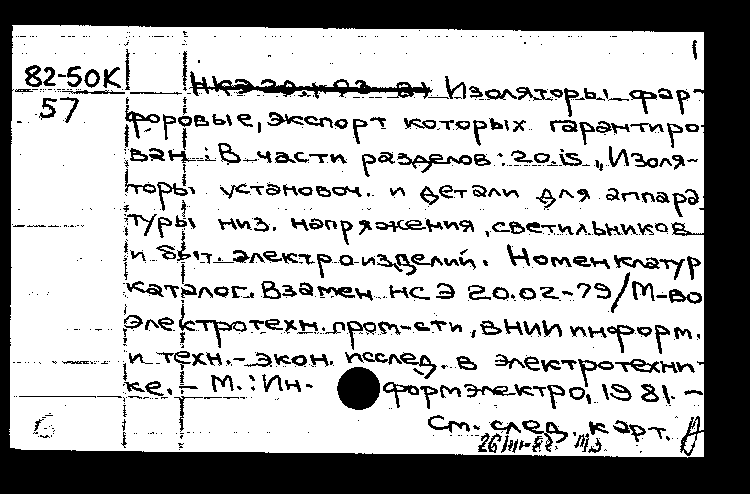 1
82-50К
57
НКЭ 20.1 03-81 Изоляторы фар-
форовые, экспорт которых гарантиро-
ван: В части разделов: 20.is, Изоля-
торы установоч. и детали для аппара-
туры низ. напряжения, светильников
и быт. электроизделий. Номенклатур
каталог. Взамен НСЭ 20.02-79/М-во
электротехн. пром-сти, ВНИИ информ.
и техн.-экон. исслед. в электротехни-
ке. - М.: Ин-формэлектро, 1981. -
См. след. карт.
6
26/III-82